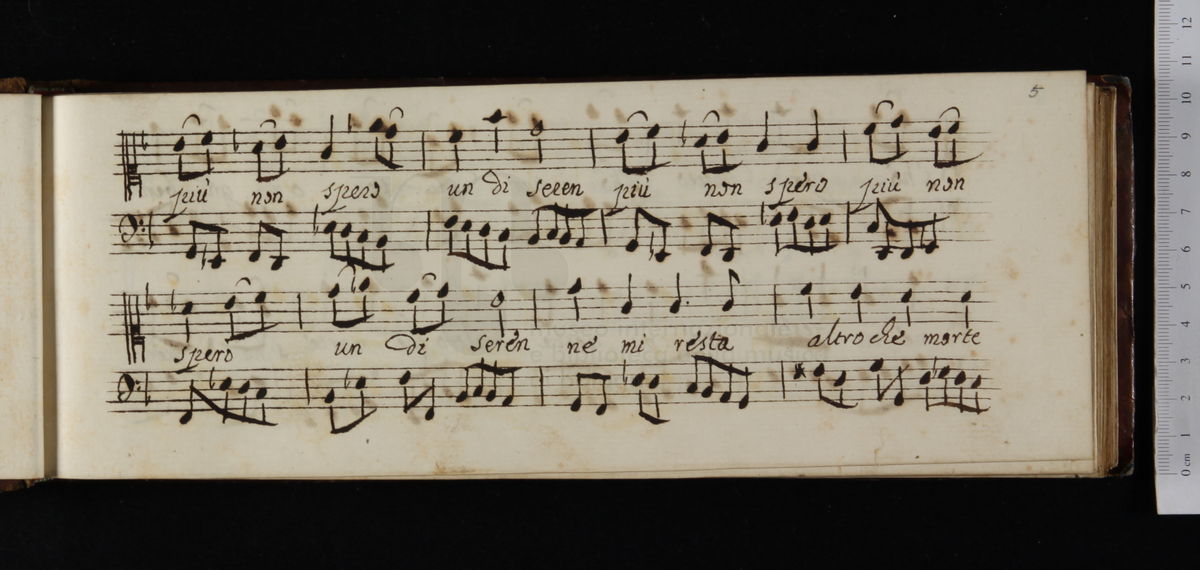 5
più non spero un di seren più non spero più non
spero un di serén né mi résta altro ché morte
12
11
10
9
8
7
6
5
4
3
2
1
0 cm